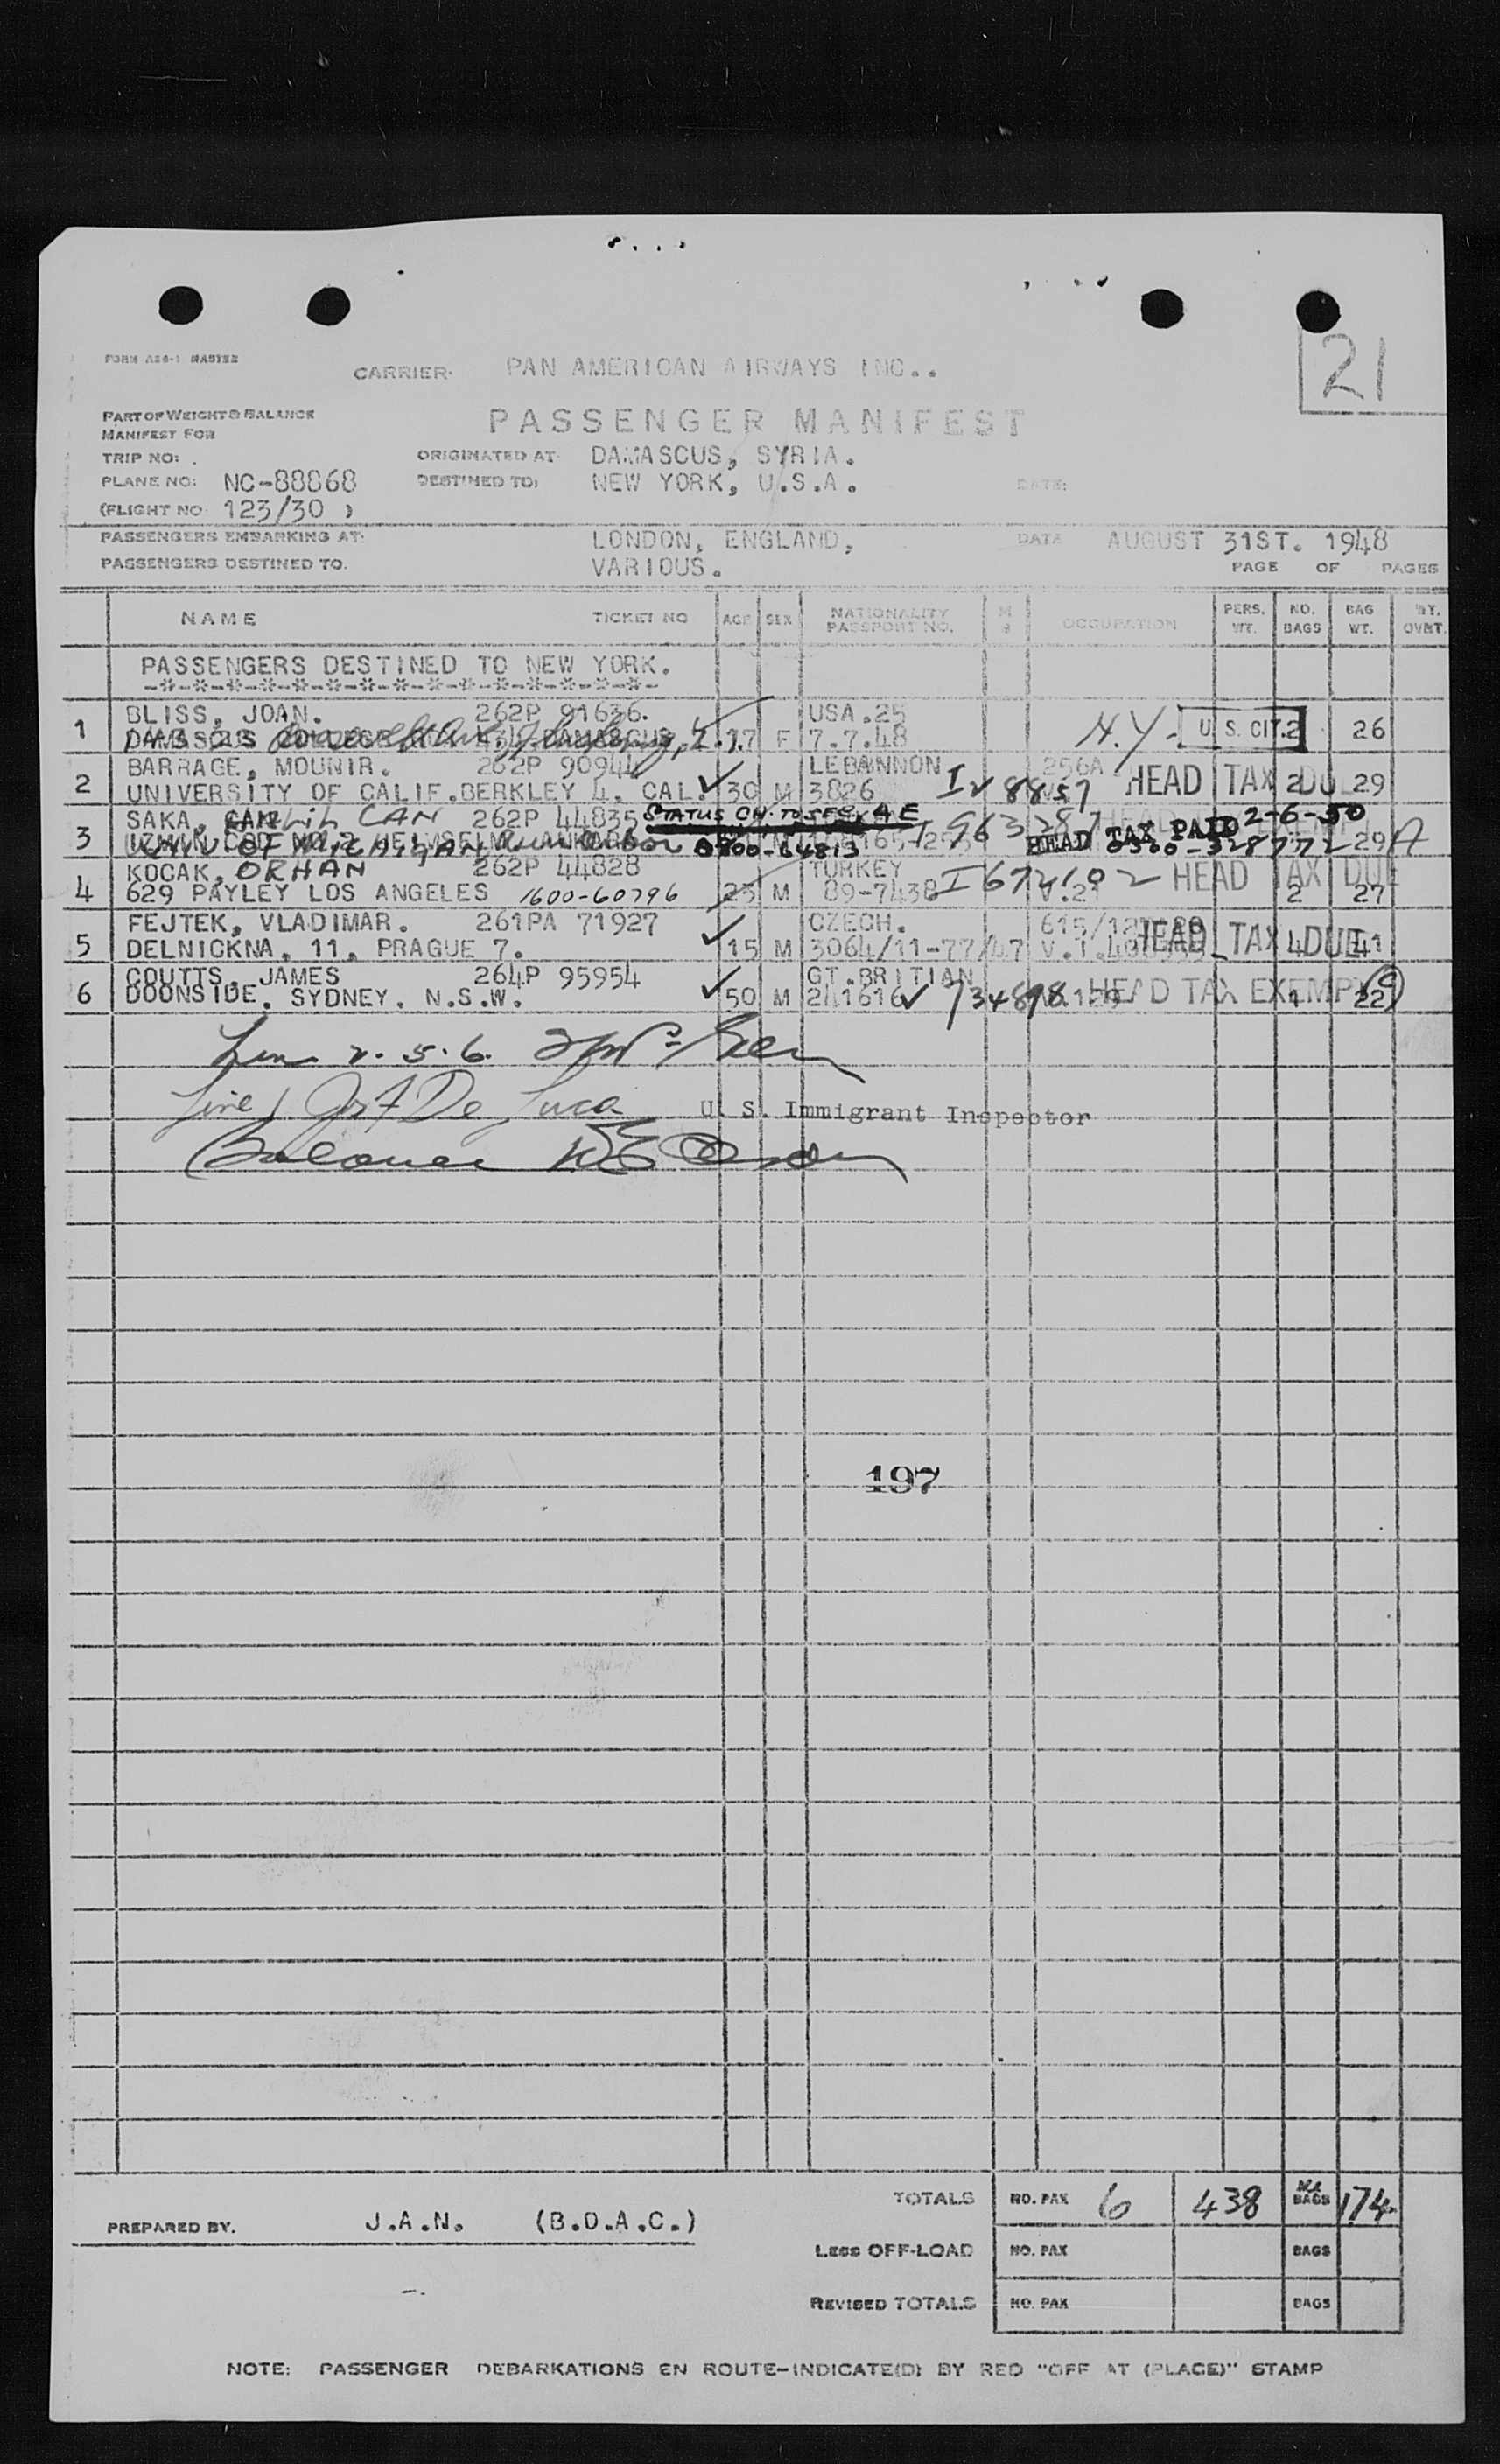 21
FORM AS6-1 MASTER
CARRIER- PAN AMERICAN AIRWAYS INC..
PART OF WEIGHT & BALANCE
MANIFEST FOR
PASSENGER MANIFEST
TRIP NO: .
ORIGINATED AT: DAMASCUS, SYRIA.
PLANE NO: NC-88868
DESTINED TO: NEW YORK, U.S.A.
DATE:
(FLIGHT NO 123/30 )
PASSENGERS EMBARKING AT: LONDON, ENGLAND,
DATE AUGUST 31ST. 1948
PASSENGERS DESTINED TO. VARIOUS.
PAGE OF PAGES
NAME TICKET NO AGE SEX NATIONALITY PASSPORT NO. OCCUPATION PERS. WT. NO. BAGS BAG WT. WT. OVNT.
PASSENGERS DESTINED TO NEW YORK.
-*-*-*-*-*-*-*-*-*-*-*-*-*-*-*-
1 BLISS, JOAN. 262P 91636. USA.25
DAMASCUS COLLEGE 17 F 7.7.48 N.Y. U.S. CIT. 2 26
2 BARRAGE, MOUNIR. 262P 90944 LEBANNON 256A
UNIVERSITY OF CALIF.BERKLEY 4, CAL. 30 M 3826 IV 8857 HEAD TAX DU 2 29
3 SAKA, HALIL CAN 262P 44835 STATUS CH. TO SEC. 4 E I 963287 HEAD TAX PAID 2-6-50
UNIV. OF MICHIGAN 0800-64813 0300-328772 29 A
4 KOCAK, ORHAN 262P 44828 TURKEY
629 PAYLEY LOS ANGELES 1600-60796 23 M 89-7438 I 672102 V.21 HEAD TAX DUE 2 27
5 FEJTEK, VLADIMAR. 261PA 71927 CZECH.
DELNICKNA, 11, PRAGUE 7. 15 M 3064/11-77/47 HEAD TAX DUE 4 41
6 COUTTS, JAMES 264P 95954 GT.BRITIAN
DOONSIDE, SYDNEY, N.S.W. 50 M 241616 I 34898 HEAD TAX EXEMPT 1 22
Line 2. 5. 6.
Line 1 Jos F De Luca U. S. Immigrant Inspector
Balance
197
TOTALS NO. PAX 6 438 BAGS 174
PREPARED BY. J.A.N. (B.O.A.C.)
LESS OFF-LOAD NO. PAX BAGS
REVISED TOTALS NO. PAX BAGS
NOTE: PASSENGER DEBARKATIONS EN ROUTE-INDICATE(D) BY RED "OFF AT (PLACE)" STAMP